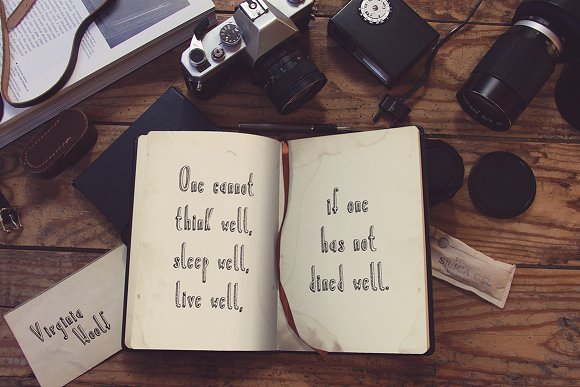 One cannot
think well,
sleep well,
live well,
if one
has not
dined well.
Virginia
Woolf
SILICA GEL